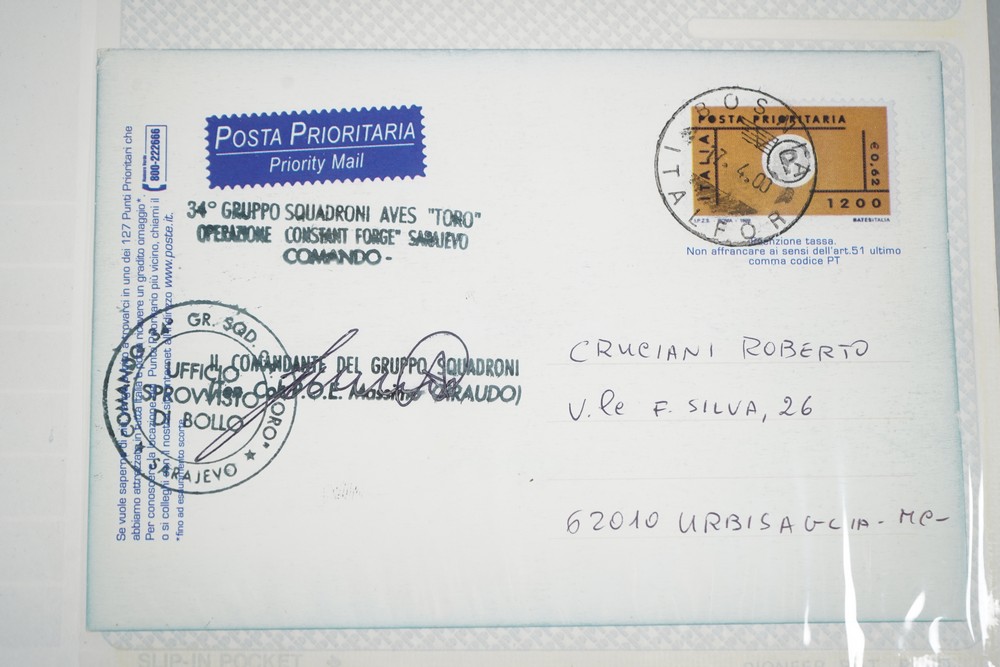 POSTA PRIORITARIA
Priority Mail
34° GRUPPO SQUADRONI AVES "TORO"
OPERAZIONE CONSTANT FORGE" SARAJEVO
COMANDO -
BOSNIA
ITALFOR
4.00
POSTA PRIORITARIA
ITALIA
P
€0,62
1200
I.P.Z.S. ROMA
tassa.
Non affrancare ai sensi dell'art.51 ultimo
comma codice PT
IL COMANDANTE DEL GRUPPO SQUADRONI
COMANDO GR. SQD. "TORO"
SARAJEVO
UFFICIO
SPROVVISTO
DI BOLLO
CRUCIANI ROBERTO
V.le F. SILVA, 26
62010 URBISAGLIA - MC -
Se vuole trovarci in uno dei 127 Punti Prioritari che
abbiamo ricevere un gradito omaggio*.
Per conoscere la locazione Punto Prioritario più vicino, chiami il 800-222666
o si colleghi indirizzo www.poste.it.
*fino ad esaurimento scorte
SLIP-IN POCKET